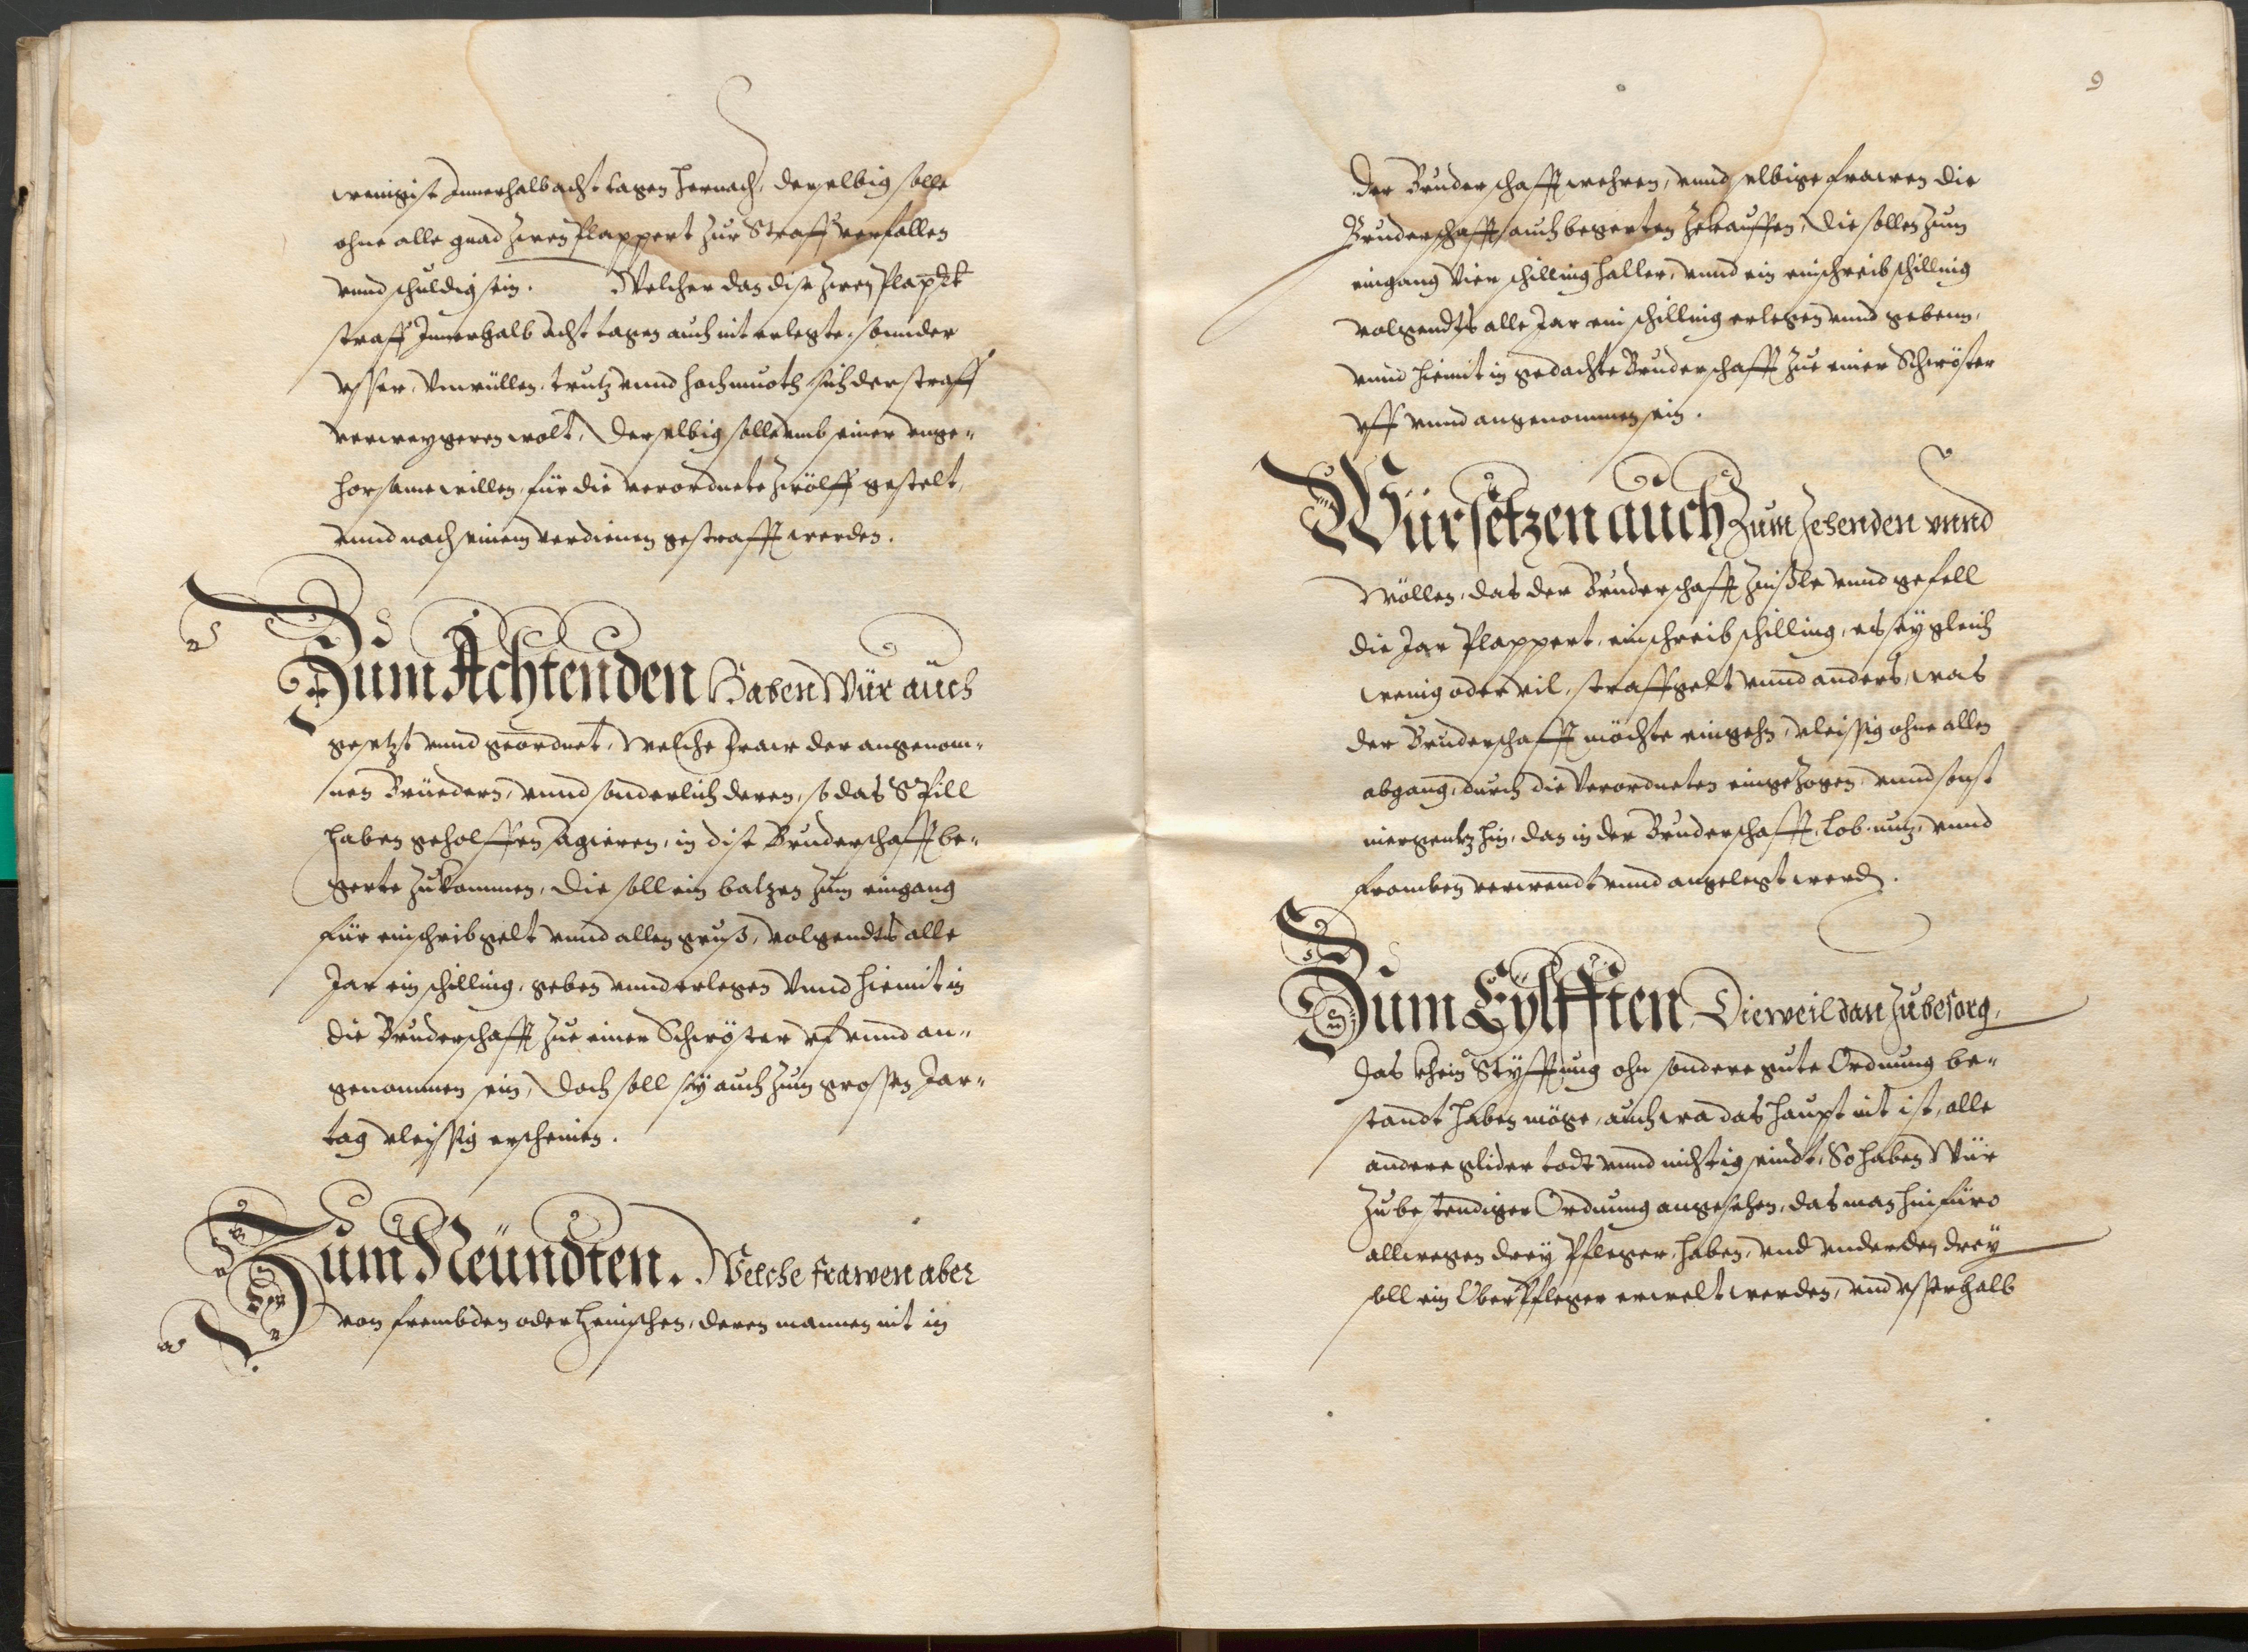 wenigist Innerhalb acht tagen hernach, derselbig solle
ohne alle gnad zwen plappert zur Straff verfallen
vnnd schuldig sein. Welcher dan dise zwen plapp̄rt
straff Innerhalb acht tagen auch nit erlegte, sonnder
vsser, Vnwüllen, trutz vnnd hochmuoth sich der straff
verweygeren wolt, Derselbig solle vmb seiner vnge„
horsame willen, für die verordnete zwölff gestelt,
vnnd nach seinem verdienen gestrafft werden.
Zum Achtenden Haben Wür auch
gesetzt vnnd geordnet, Welche fraw der angenom„
nen Brüedern, vnnd sonderlich deren, so das Spill
haben geholffen agieren, in dise Bruderschafft be„
gerte zukommen, Die soll ein batzen zum eingang
für einschribgelt vnnd allen gruß, volgendts alle
Jar ein schilling, geben vnnd erlegen Vnnd hiemit in
die Bruderschafft zue einer Schwöster vf vnnd an„
genommen sein, Doch soll sÿ auch zum grossen Jar„
tag vleissig erscheinen.
Zum Neündten. Welche frawen aber
von frembden oder heimschen, deren mannen nit in
9
der Bruderschafft wehren, vnnd selbige frawen die
Bruderschafft auch begerten zekauffen, Die sollen zum
eingang Vier schilling haller, vnnd ein einschreib schilling
volgendts alle Jar ein schilling erlegen vnnd gebenn,
vnnd hiemit in gedachte Bruderschafft zue einer Schwöster
vff vnnd angenommen sein.
Wür setzen auch Zum Zehenden vnnd
Wöllen, das der Bruderschafft zinßle vnnd gefell
die Jar Plappert, einschreib schilling, es sÿ gleich
wenig oder vil, straffgelt vnnd anders, was
der Bruderschafft möchte eingehn, vleissig ohne allen
abgang, durch die Verordneten eingezogen, vnnd sonst
niergentz hin, dan in der Bruderschafft, lob, nutz, vnnd
fromben verwendt vnnd angelegt werdē.
Zum Eÿlfften, Dieweil dan zubesorg,
Das khein Styfftung ohn sondere gute Ordnung be„
standt haben möge, auch wa das haupt nit ist, alle
andere glider todt vnnd nichtig seindt, So haben Wür
Zu bestendiger Ordnung angesehen, das man hinfüro
allwegen dreÿ Pfleger, haben, vnd vnder den dreÿ
soll ein Ober Pfleger erwelt werden, vnd vsserhalb